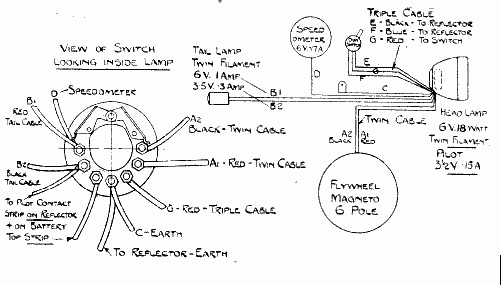 VIEW OF SWITCH
LOOKING INSIDE LAMP
D - SPEEDOMETER
B1
RED
TAIL CABLE
B2
BLACK
TAIL CABLE
TO PILOT CONTACT
STRIP ON REFLECTOR
+ ON BATTERY
TOP STRIP
A2
BLACK - TWIN CABLE
A1 - RED - TWIN CABLE
G - RED - TRIPLE CABLE
C - EARTH
TO REFLECTOR - EARTH
TAIL LAMP
TWIN FILAMENT
6V. 1 AMP
3.5V .3 AMP
B1
B2
SPEED
OMETER
6V.
D
C
TRIPLE CABLE
E - BLACK - TO REFLECTOR
F - BLUE - TO REFLECTOR
G - RED - TO SWITCH
E
G
F
TWIN CABLE
A2
BLACK
A1
RED
FLYWHEEL
MAGNETO
6 POLE
HEAD LAMP
6V. 18 WATT
TWIN FILAMENT
PILOT
3½V .15A